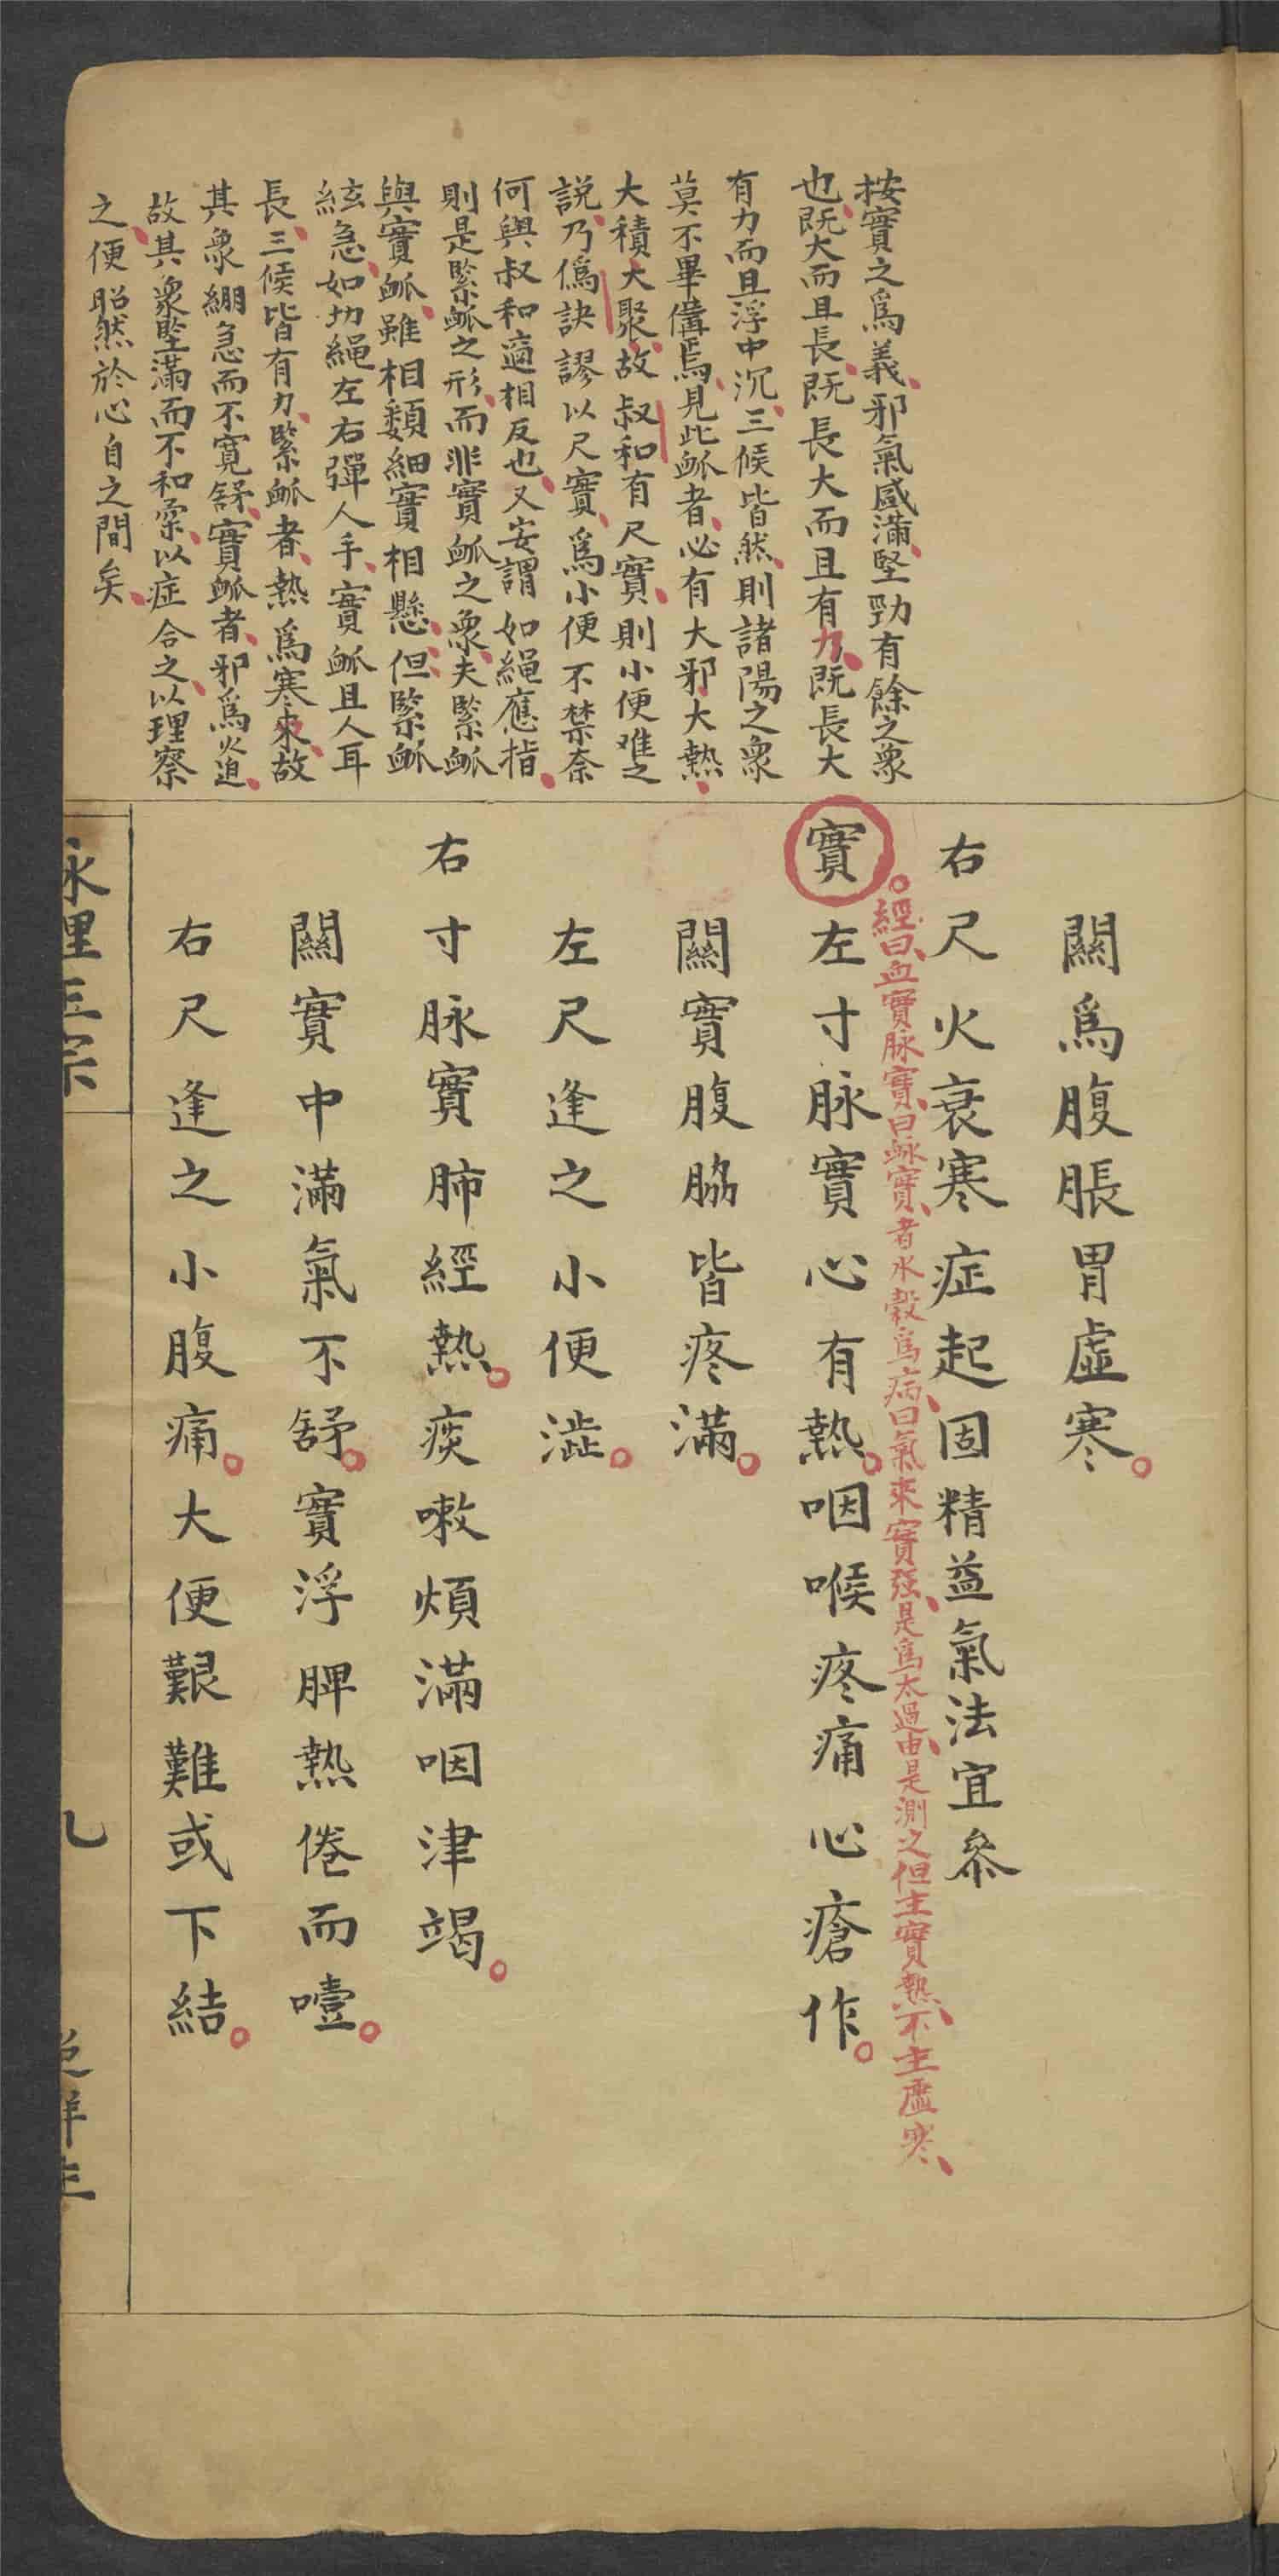 按實之爲義邪氣盛滿堅勁有餘之象
也既大而且長既長大而且有力既長大
有力而且浮中沉三候皆然則諸陽之象
莫不畢備焉見此脈者必有大邪大熱
大積大聚故叔和有尺實則小便难之
説乃僞訣謬以尺實爲小便不禁奈
何與叔和適相反也又妄謂如繩應指
則是緊脈之形而非實脈之象夫緊脈
與實脈雖相類細實相懸但緊脈
絃急如切繩左右彈人手實脈且人耳
長三候皆有力緊脈者熱爲寒束故
其象綳急而不寬舒實脈者邪爲火迫
故其象堅滿而不和柔以症合之以理察
之便昭然於心自之間矣
關爲腹脹胃虛寒
右尺火衰寒症起固精益氣法宜叅
經曰血實脉實曰脉實者水穀爲病曰氣來實强是爲太過由是測之但主實熱不主虛寒
實左寸脉實心有熱咽喉疼痛心瘡作
關實腹脇皆疼滿
左尺逢之小便澁
右寸脉實肺經熱痰嗽煩滿咽津竭
關實中滿氣不舒實浮脾熱倦而噎
右尺逢之小腹痛大便艱難或下結
脉理正宗